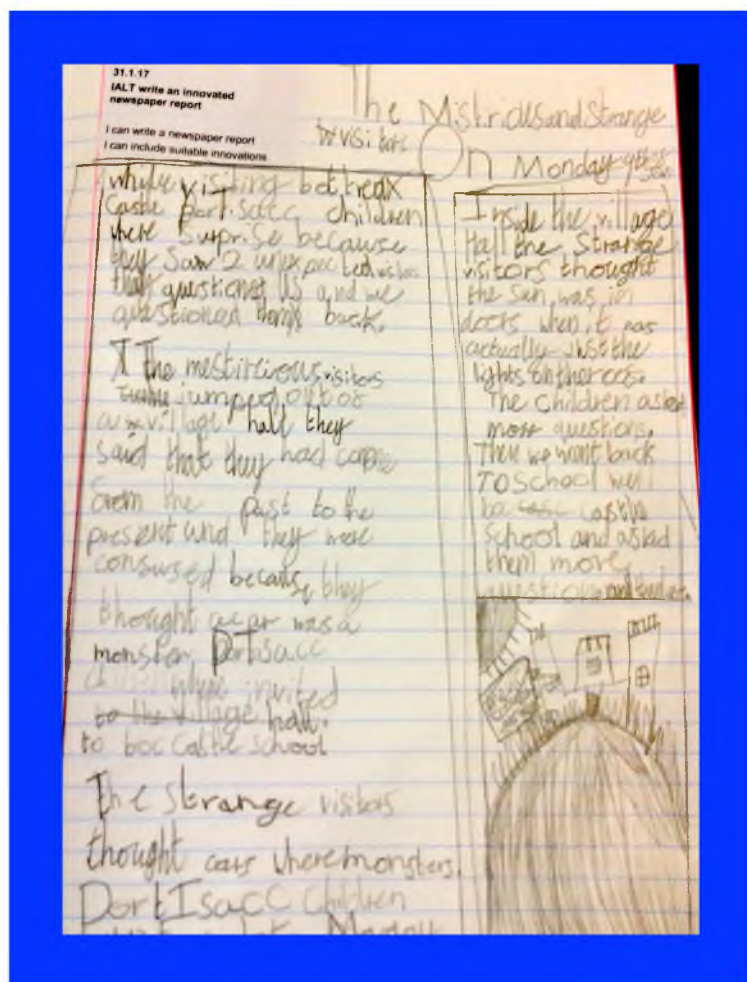 31.1.17
IALT write an innovated
newspaper report
I can write a newspaper report
I can include suitable innovations
The Mistrious and Strange
visitors
On Monday
while visiting botreax
Castle portisacc children
where Surprise because
they saw 2 unexpected visitors
that questioned us and we
questioned them back.
The mestirivous visitors
jumped out of
village hall they
said that they had come
from the past to the
present and they were
consused because they
thought a car was a
monster. Portisacc
where invited
to the village hall.
to boc Caltle school
The strange visitors
thought cars where monsters.
PortIsacc Children
Inside the village
Hall the Strange
visitors thought
the sun was in
doors when it was
actually Just the
lights on the roof.
The children asked
more questions.
Then we want back
To School we
castle
school and asked
them more
questions